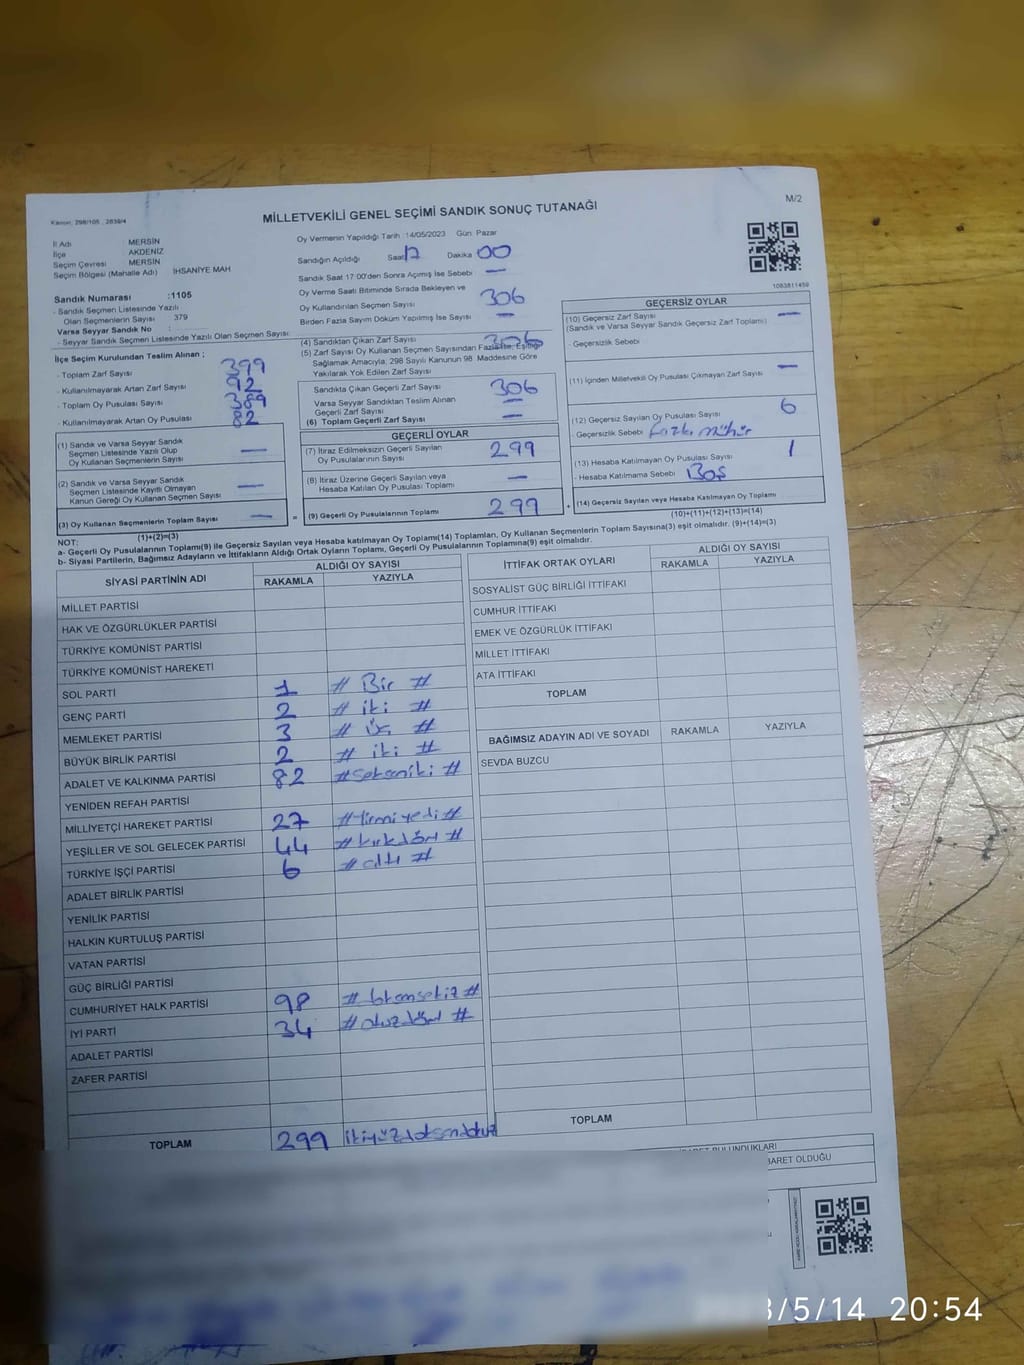 M/2
Kanun; 298/105 , 2839/4
MİLLETVEKİLİ GENEL SEÇİMİ SANDIK SONUÇ TUTANAĞI
İl Adı MERSİN
İlçe AKDENİZ
Seçim Çevresi MERSİN
Seçim Bölgesi (Mahalle Adı) İHSANİYE MAH
Sandık Numarası :1105
- Sandık Seçmen Listesinde Yazılı
Olan Seçmenlerin Sayısı 379
Varsa Seyyar Sandık No :
- Seyyar Sandık Seçmen Listesinde Yazılı Olan Seçmen Sayısı:
İlçe Seçim Kurulundan Teslim Alınan ;
- Toplam Zarf Sayısı 399
- Kullanılmayarak Artan Zarf Sayısı 92
- Toplam Oy Pusulası Sayısı 389
- Kullanılmayarak Artan Oy Pusulası 82
(1) Sandık ve Varsa Seyyar Sandık
Seçmen Listesinde Yazılı Olup
Oy Kullanan Seçmenlerin Sayısı —
(2) Sandık ve Varsa Seyyar Sandık
Seçmen Listesinde Kayıtlı Olmayan
Kanun Gereği Oy Kullanan Seçmen Sayısı —
(3) Oy Kullanan Seçmenlerin Toplam Sayısı —
(1)+(2)=(3)
Oy Vermenin Yapıldığı Tarih :14/05/2023 Gün: Pazar
Sandığın Açıldığı Saat 17 Dakika 00
Sandık Saat 17:00'den Sonra Açımış İse Sebebi —
Oy Verme Saati Bitiminde Sırada Bekleyen ve
Oy Kullandırılan Seçmen Sayısı 306
Birden Fazla Sayım Döküm Yapılmış İse Sayısı —
(4) Sandıktan Çıkan Zarf Sayısı 306
(5) Zarf Sayısı Oy Kullanan Seçmen Sayısından Fazla ise, Eşitliği
Sağlamak Amacıyla; 298 Sayılı Kanunun 98. Maddesine Göre
Yakılarak Yok Edilen Zarf Sayısı
Sandıkta Çıkan Geçerli Zarf Sayısı 306
Varsa Seyyar Sandıktan Teslim Alınan
Geçerli Zarf Sayısı —
(6) Toplam Geçerli Zarf Sayısı —
GEÇERLİ OYLAR
(7) İtiraz Edilmeksizin Geçerli Sayılan
Oy Pusulalarının Sayısı 299
(8) İtiraz Üzerine Geçerli Sayılan veya
Hesaba Katılan Oy Pusulası Toplamı —
= (9) Geçerli Oy Pusulalarının Toplamı 299 +
1083811459
GEÇERSİZ OYLAR
(10) Geçersiz Zarf Sayısı —
(Sandık ve Varsa Seyyar Sandık Geçersiz Zarf Toplamı)
- Geçersizlik Sebebi
(11) İçinden Milletvekili Oy Pusulası Çıkmayan Zarf Sayısı —
(12) Geçersiz Sayılan Oy Pusulası Sayısı 6
Geçersizlik Sebebi fazla mühür
(13) Hesaba Katılmayan Oy Pusulası Sayısı 1
- Hesaba Katılmama Sebebi Boş
(14) Geçersiz Sayılan veya Hesaba Katılmayan Oy Toplamı
(10)+(11)+(12)+(13)=(14)
NOT:
a- Geçerli Oy Pusulalarının Toplamı(9) ile Geçersiz Sayılan veya Hesaba katılmayan Oy Toplamı(14) Toplamları, Oy Kullanan Seçmenlerin Toplam Sayısına(3) eşit olmalıdır. (9)+(14)=(3)
b- Siyasi Partilerin, Bağımsız Adayların ve İttifakların Aldığı Ortak Oyların Toplamı, Geçerli Oy Pusulalarının Toplamına(9) eşit olmalıdır.
SİYASİ PARTİNİN ADI ALDIĞI OY SAYISI
RAKAMLA YAZIYLA
MİLLET PARTİSİ
HAK VE ÖZGÜRLÜKLER PARTİSİ
TÜRKİYE KOMÜNİST PARTİSİ
TÜRKİYE KOMÜNİST HAREKETİ
SOL PARTİ 1 # Bir #
GENÇ PARTİ 2 # iki #
MEMLEKET PARTİSİ 3 # üç #
BÜYÜK BİRLİK PARTİSİ 2 # iki #
ADALET VE KALKINMA PARTİSİ 82 #sekseniki #
YENİDEN REFAH PARTİSİ
MİLLİYETÇİ HAREKET PARTİSİ 27 #yirmiyedi #
YEŞİLLER VE SOL GELECEK PARTİSİ 44 #kırkdört #
TÜRKİYE İŞÇİ PARTİSİ 6 # altı #
ADALET BİRLİK PARTİSİ
YENİLİK PARTİSİ
HALKIN KURTULUŞ PARTİSİ
VATAN PARTİSİ
GÜÇ BİRLİĞİ PARTİSİ
CUMHURİYET HALK PARTİSİ 98 # doksansekiz #
İYİ PARTİ 34 # otuzdört #
ADALET PARTİSİ
ZAFER PARTİSİ
TOPLAM 299 ikiyüzdoksandokuz
İTTİFAK ORTAK OYLARI ALDIĞI OY SAYISI
RAKAMLA YAZIYLA
SOSYALİST GÜÇ BİRLİĞİ İTTİFAKI
CUMHUR İTTİFAKI
EMEK VE ÖZGÜRLÜK İTTİFAKI
MİLLET İTTİFAKI
ATA İTTİFAKI
TOPLAM
BAĞIMSIZ ADAYIN ADI VE SOYADI RAKAMLA YAZIYLA
SEVDA BUZCU
TOPLAM
BULUNDUKLARI
BARET OLDUĞU
3/5/14 20:54